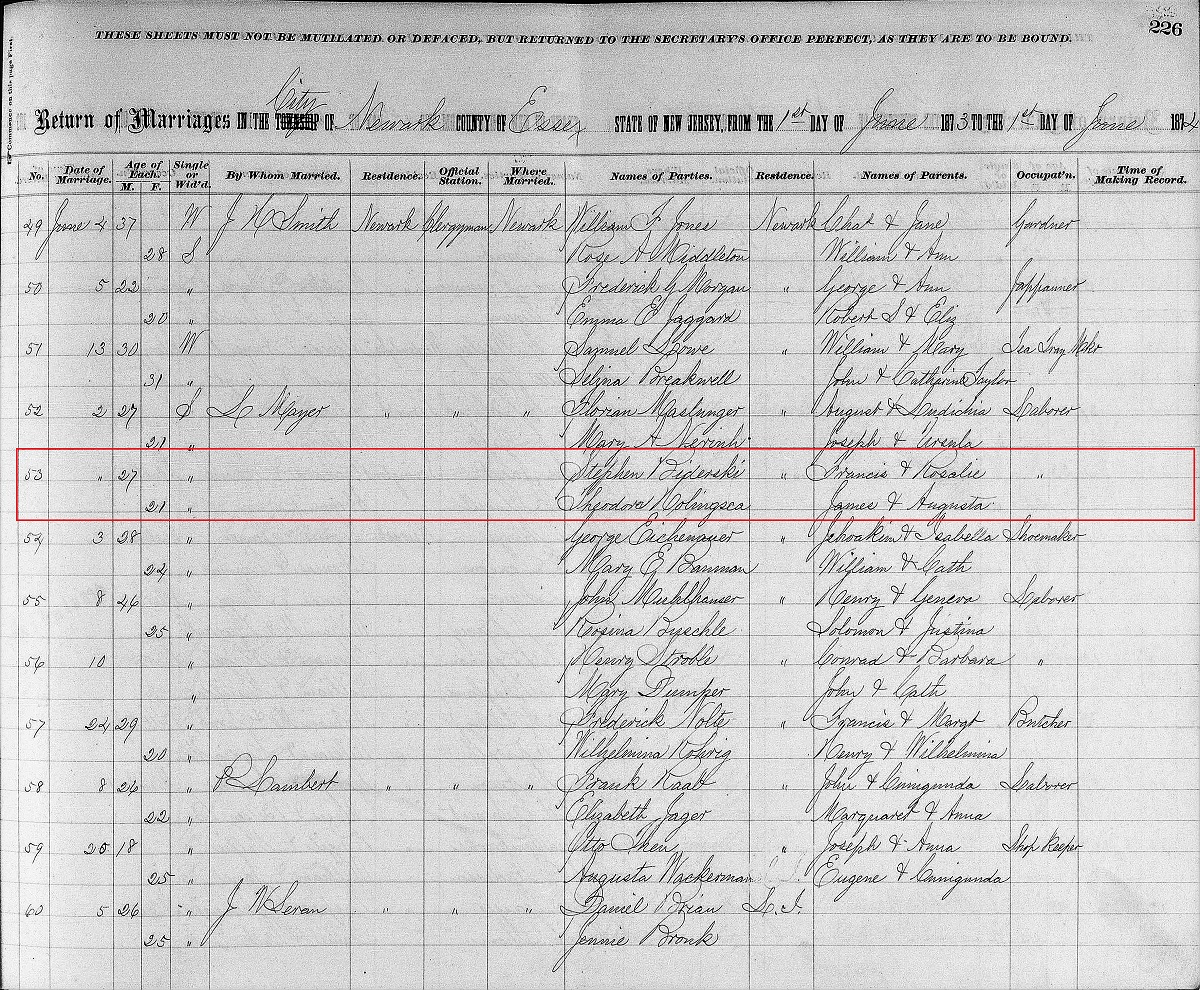 226
THESE SHEETS MUST NOT BE MUTILATED OR DEFACED, BUT RETURNED TO THE SECRETARY'S OFFICE PERFECT, AS THEY ARE TO BE BOUND.
Commence on this page First.
City
Return of Marriages IN THE TOWNSHIP OF Newark COUNTY OF Essex STATE OF NEW JERSEY, FROM THE 1st DAY OF June 1873 TO THE 1st DAY OF June 1874
No. Date of Marriage. Age of Each. M. F. Single or Wid'd. By Whom Married. Residence. Official Station. Where Married. Names of Parties. Residence. Names of Parents. Occupat'n. Time of Making Record.
49 June 4 37 W J H Smith Newark Clergyman Newark William F Jones Newark Chas & Jane Gardner
28 S Rose A Middleton William & Ann
50 5 22 " Frederick G Morgan " George & Ann Jappanner
20 " Emma E Jaggard Robert S & Eliz
51 13 30 W Samuel Lowe " William & Mary Tea Tray Mkr
31 " Selina Breakwell John & Catharine Taylor
52 2 27 S L Mayer " " " Florian " August & Laborer
21 " Mary A Joseph & Ursula
53 " 27 " Stephen Biderski " Francis & Rosalie "
21 " Theodore Kolingsca James & Augusta
54 3 28 " George Eichenauer " Jehoakim & Isabella Shoemaker
24 " Mary E Bauman William & Cath
55 8 46 " John Muehlhauser " Henry & Geneva Laborer
25 " Rosina Byschle Solomon & Justina
56 10 " Henry Stroble " Conrad & Barbara "
" Mary Dumper John & Cath
57 24 29 " Frederick Nolte " Francis & Margt Butcher
20 " Wilhelmina Rohrig Henry & Wilhelmina
58 8 26 " P Lambert " " " Frank Raab " John & Cunigunda Laborer
22 " Elizabeth Jager Marquaret & Anna
59 20 18 " Otto Then " Joseph & Anna Shop Keeper
25 " Augusta Wackerman Eugene & Cunigunda
60 5 26 " J W Seran " " " Daniel Brian L. I.
25 " Jennie Bronk